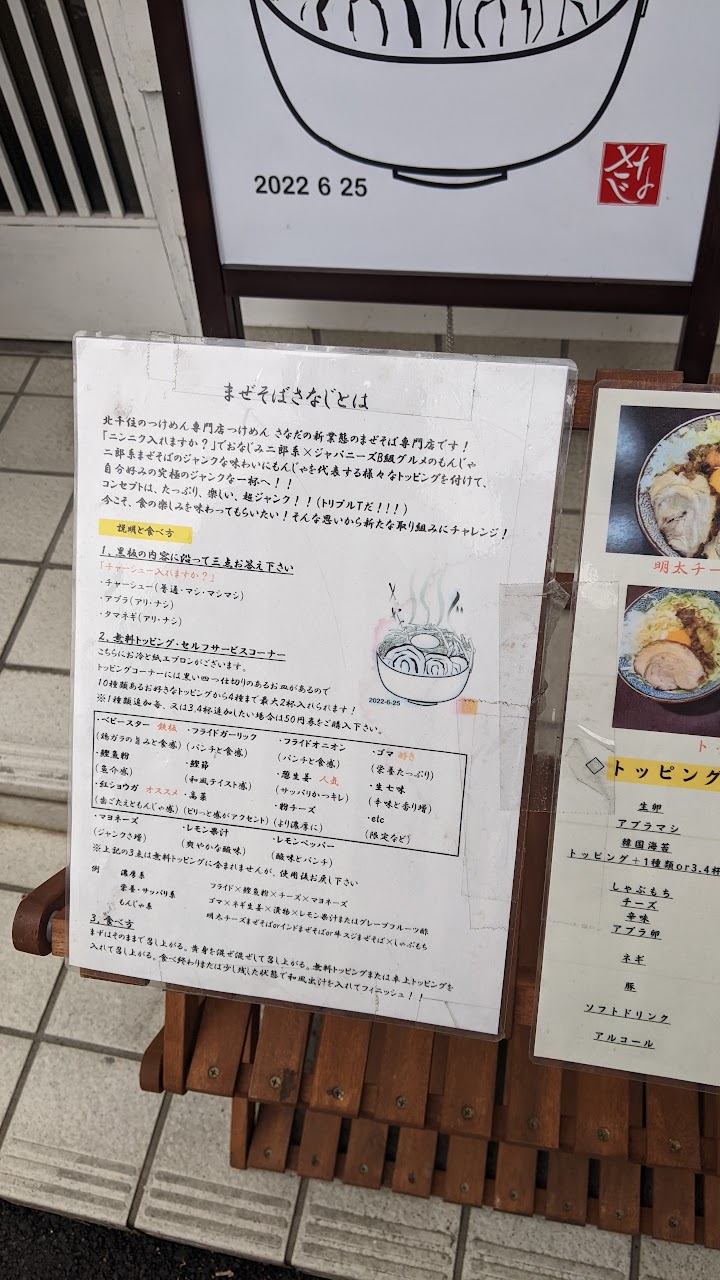 2022 6 25
さなじ
まぜそばさなじとは
北千住のつけめん専門店つけめん さなだの新業態のまぜそば専門店です！
「ニンニク入れますか？」でおなじみ二郎系×ジャパニーズB級グルメのもんじゃ
二郎系まぜそばのジャンクな味わいにもんじゃを代表する様々なトッピングを付けて、
自分好みの究極のジャンクな一杯へ！！
コンセプトは、たっぷり、楽しい、超ジャンク！！(トリプルTだ！！！)
今こそ、食の楽しみを味わってもらいたい！そんな思いから新たな取り組みにチャレンジ！
説明と食べ方
1. 黒板の内容に沿って三点お答え下さい
「チャーシュー入れますか？」
・チャーシュー(普通・マシ・マシマシ)
・アブラ(アリ・ナシ)
・タマネギ(アリ・ナシ)
2. 無料トッピング・セルフサービスコーナー
こちらにお冷と紙エプロンがございます。
トッピングコーナーには黒い四つ仕切りのあるお皿があるので
10種類あるお好きなトッピングから4種まで最大2杯入れられます！
※1種類追加毎、又は3.4杯追加したい場合は50円券をご購入下さい。
2022-6-25
・ベビースター 鉄板 ・フライドガーリック ・フライドオニオン ・ゴマ 好き
(鶏ガラの旨みと食感) (パンチと食感) (パンチと食感) (栄養たっぷり)
・鰹魚粉 ・鰹節 ・葱生姜 人気 ・生七味
(魚介感) (和風テイスト感) (サッパリかつキレ) (辛味と香り増)
・紅ショウガ オススメ ・高菜 ・粉チーズ ・etc
(歯ごたえともんじゃ感) (ピリっと感がアクセント) (より濃厚に) (限定など)
・マヨネーズ ・レモン果汁 ・レモンペッパー
(ジャンクさ増) (爽やかな酸味) (酸味とパンチ)
※上記の3点は無料トッピングに含まれませんが、使用後お戻し下さい
例 濃厚系 フライド×鰹魚粉×チーズ×マヨネーズ
栄養・サッパリ系 ゴマ×ネギ生姜×漬物×レモン果汁またはグレープフルーツ酢
もんじゃ系 明太チーズまぜそばorインドまぜそばor牛スジまぜそば×しゃぶもち
3. 食べ方
まずはそのままで召し上がる。黄身を混ぜ混ぜして召し上がる。無料トッピングまたは卓上トッピングを
入れて召し上がる。食べ終わりまたは少し残した状態で和風出汁を入れてフィニッシュ！！
明太チー
ト
◇トッピング
生卵
アブラマシ
韓国海苔
トッピング＋1種類or3.4杯
しゃぶもち
チーズ
辛味
アブラ卵
ネギ
豚
ソフトドリンク
アルコール